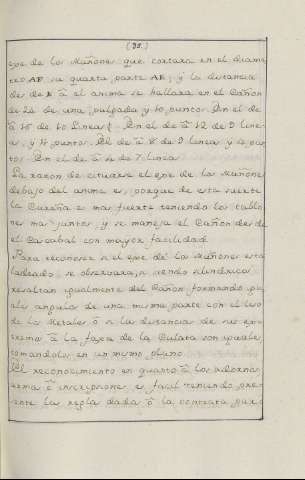 (35.)
exe de los Muñones que cortara en el diame
tro AF su quarta parte AE; y la distancia
de de à el anima se hallara en el Cañon
de 24 de una pulgada y 10 puntos. En el de
à 16 de 10 lineas. En el de à 12 de 9 line
as, y puntos. El de à 8 de 9 lineas y pun
tos. En el de à 4 de 7 lineas.
La razon de situarse el exe de los Muñones
debajo del anima es, porque de esta suerte
la Cureña es mas fuerte teniendo los tablo
nes mas juntos, y se maneja el Cañon desde
el Cascabel con mayor facilidad.
Para reconocer si el exe de los Muñones està
ladeado, se observara, si siendo silindricos
resaltan igualmente del Cañon formando ygu
ales angulos de una misma parte con el vivo
de los Metales ò si la distancia de sus ex
tremos à la faxa de la Culata son yguales
tomandolos en un mismo plano.
El reconocimiento en quanto à los Adornos,
Armas è inscripciones es facil teniendo pre
sente la regla dada ò la contrata para